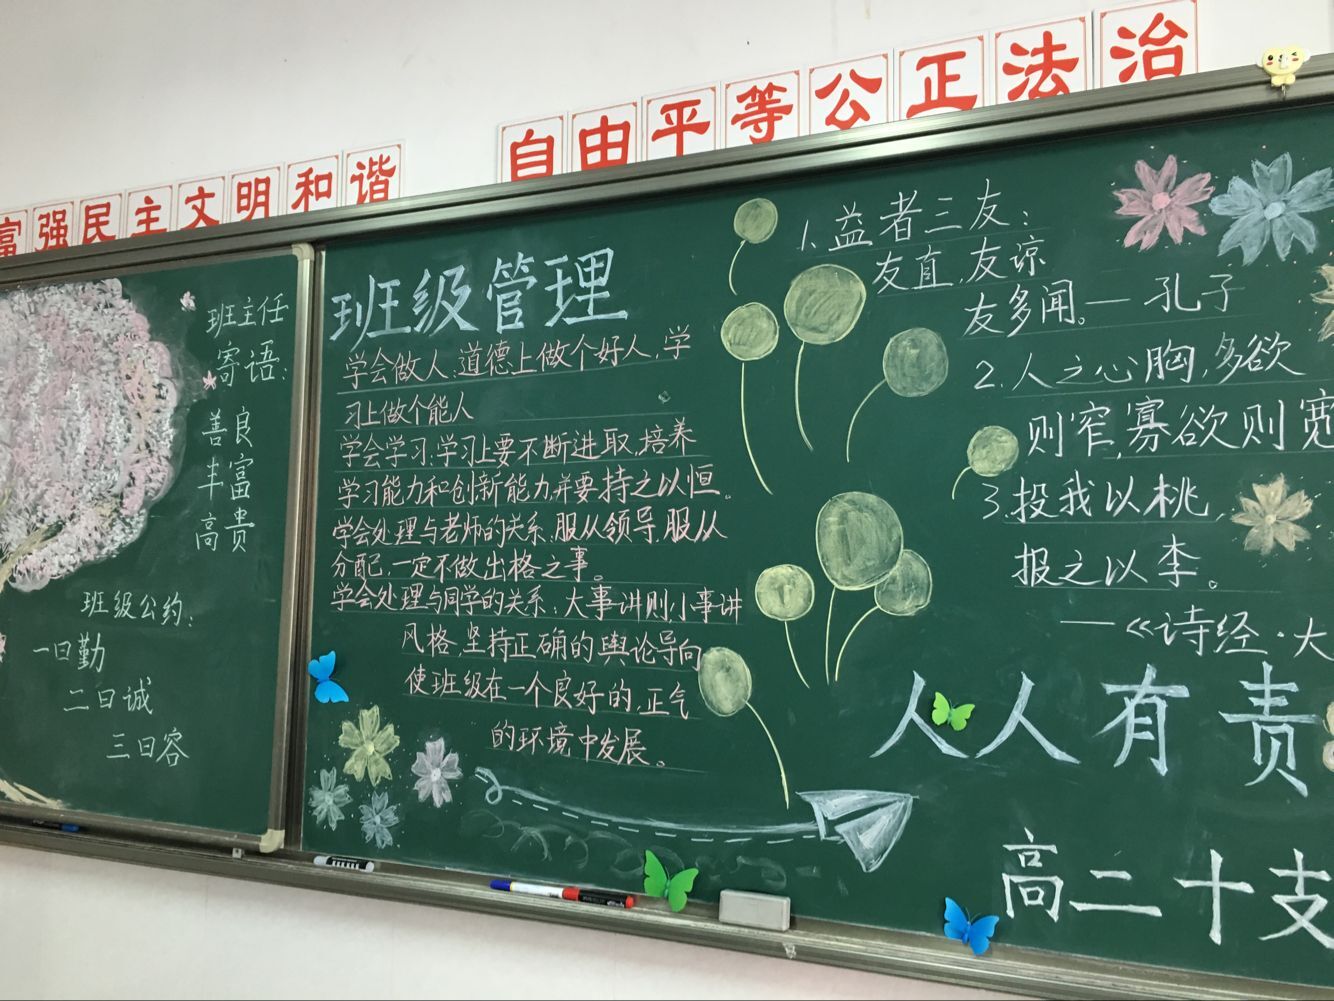 富强民主文明和谐
自由平等公正法治
班主任
寄语：
善良
丰富
高贵
班级公约：
一曰勤
二曰诚
三曰容
班级管理
学会做人：道德上做个好人，学
习上做个能人
学会学习：学习上要不断进取，培养
学习能力和创新能力，并要持之以恒。
学会处理与老师的关系，服从领导，服从
分配，一定不做出格之事。
学会处理与同学的关系：大事讲则，小事讲
风格，坚持正确的舆论导向
使班级在一个良好的，正气
的环境中发展。
1.益者三友：
友直，友谅
友多闻。—孔子
2.人之心胸，多欲
则窄，寡欲则宽
3.投我以桃，
报之以李。
—《诗经·大
人人有责
高二十支